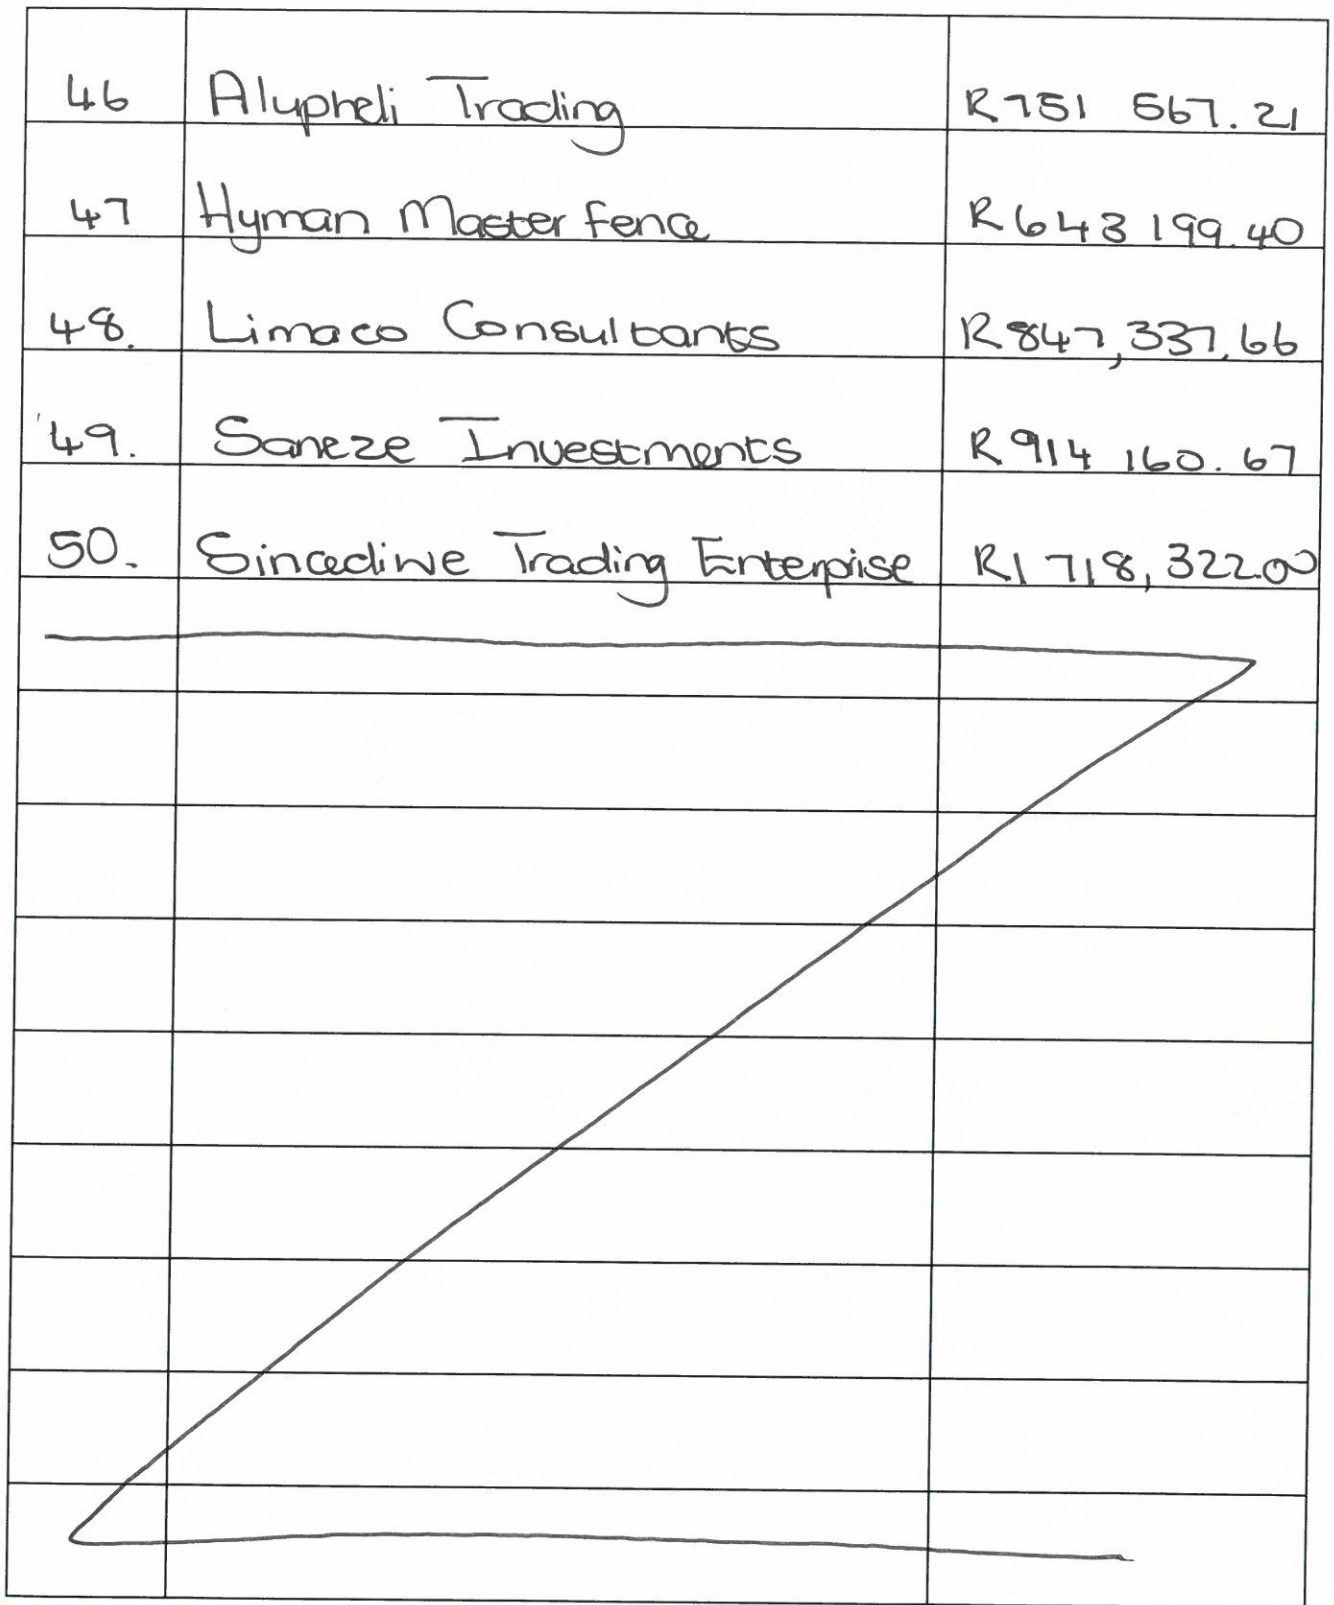 46 Alypheli Trading R751 567.21
47 Hyman Master fence R643 199.40
48. Limaco Consultants R847,337,66
49. Saneze Investments R914 160.67
50. Sincediwe Trading Enterprise R1 718, 322.00